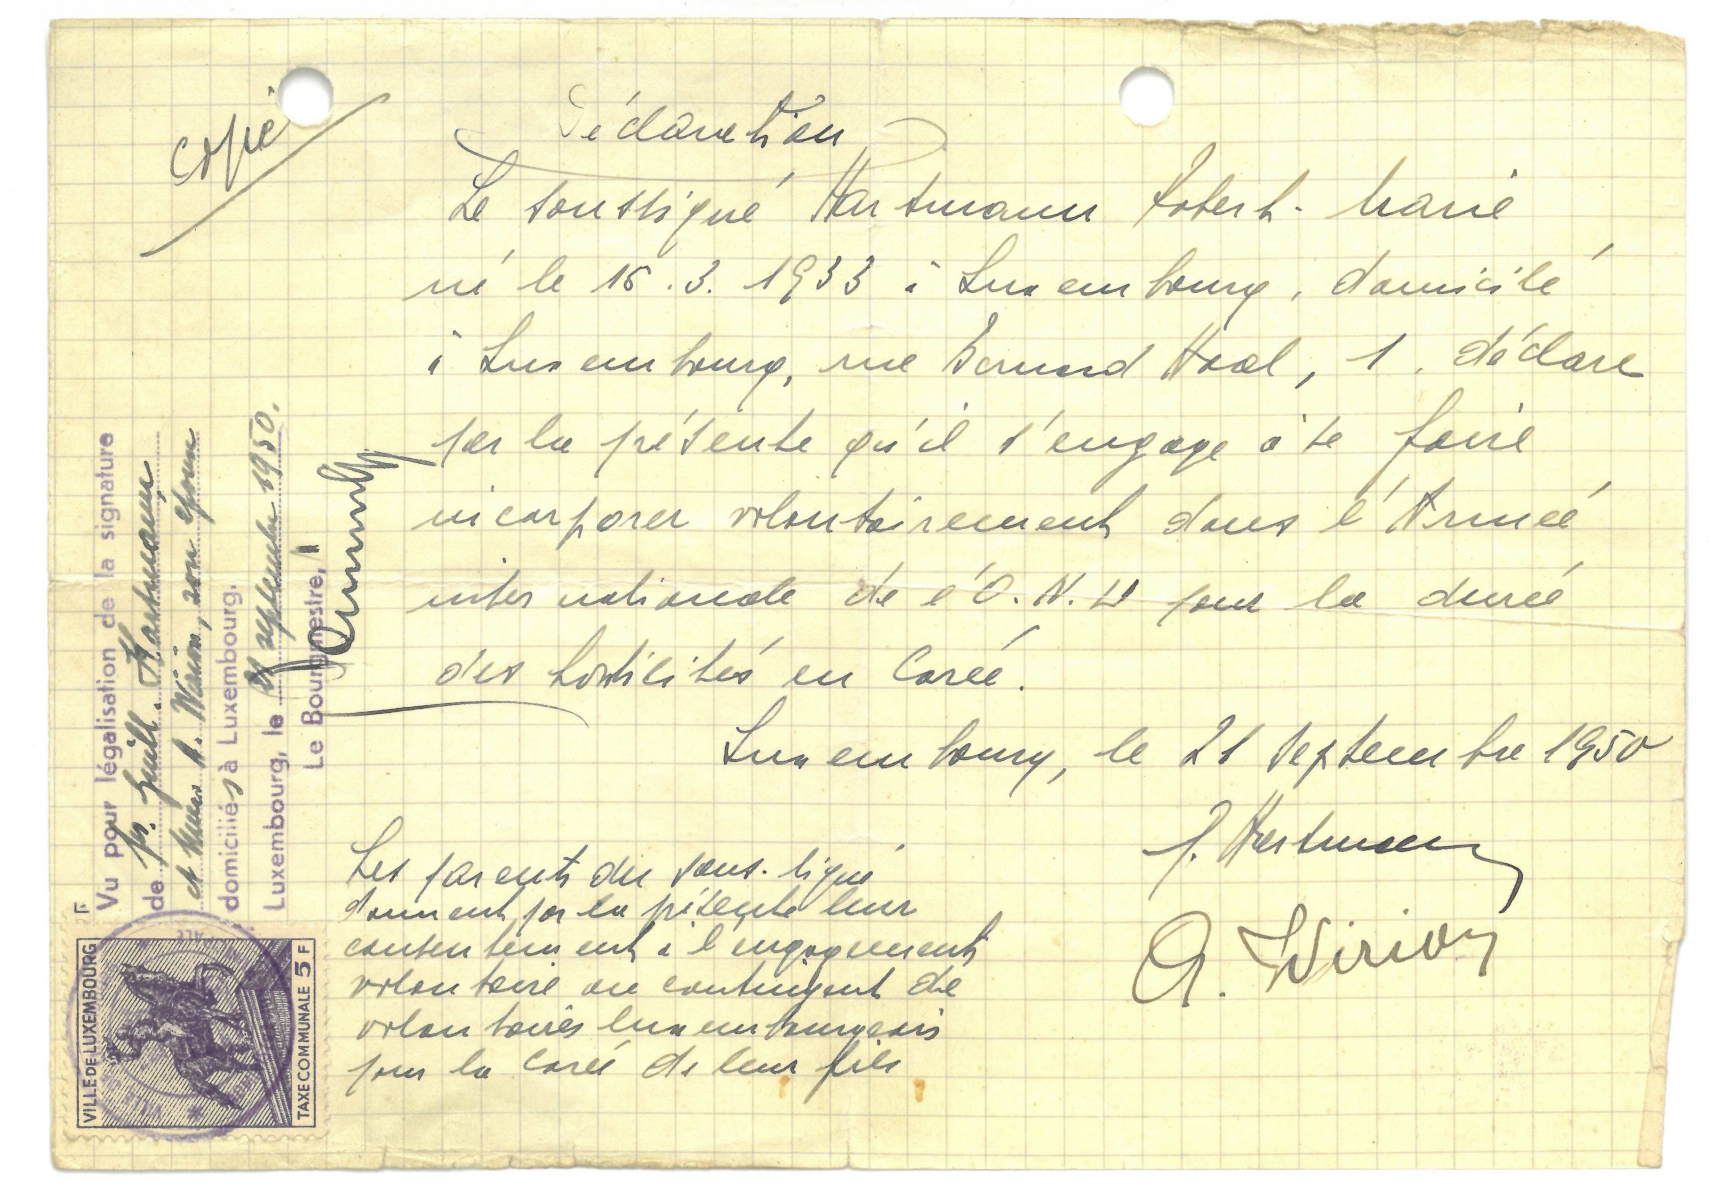 copie
Déclaration
Le soussigné Hartmann Robert-Marie
né le 15.3.1933 à Luxembourg, domicilé
à Luxembourg, rue Bernard Haal, 1. déclare
par la présente qu'il s'engage à se faire
incorporer volontairement dans l'Armée
internationale de l'O.N.U pour la durée
des hostilités en Corée.
Luxembourg, le 21 septembre 1950
J. Hartmann
A. Wirion
Les parents du sous-signé
donnent par la présente leur
consentement à l'engagement
volontaire au contingent de
volontaires luxembourgeois
pour la Corée de leur fils
Vu pour légalisation de la signature
de Mr. Guill. Hartmann
et Mme A. Wirion, son épouse
domiciliés à Luxembourg.
Luxembourg, le 21 septembre 1950.
Le Bourgmestre,
F
VILLE DE LUXEMBOURG
TAXE COMMUNALE 5 F